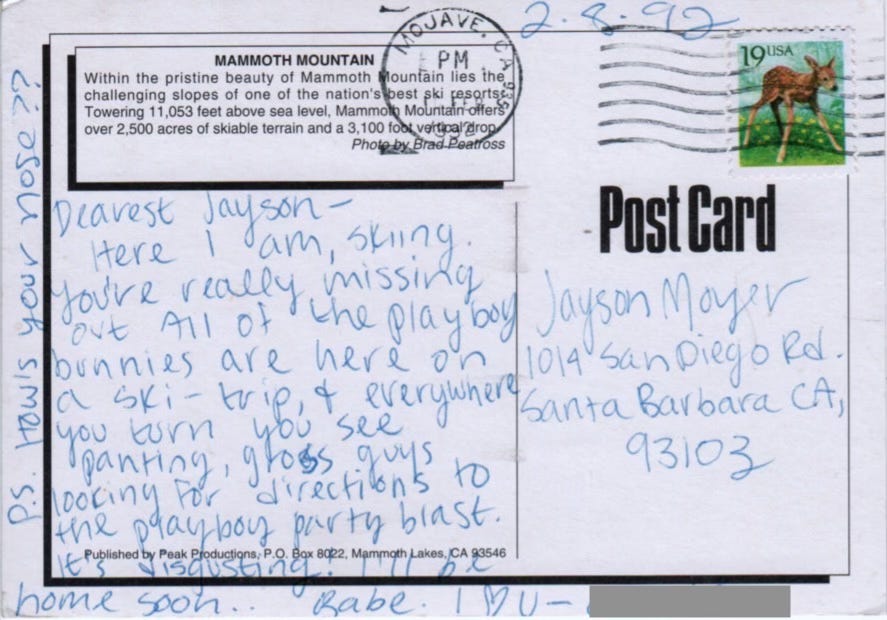 2.8.92
MOJAVE, CA 935
PM
FEB
1992
19 USA
MAMMOTH MOUNTAIN
Within the pristine beauty of Mammoth Mountain lies the
challenging slopes of one of the nation's best ski resorts.
Towering 11,053 feet above sea level, Mammoth Mountain offers
over 2,500 acres of skiable terrain and a 3,100 foot vertical drop.
Photo by Brad Peatross
Dearest Jayson-
Here I am, skiing.
You're really missing
out All of the playboy
bunnies are here on
a ski-trip, & everywhere
you turn you see
panting, gross guys
looking for directions to
the playboy party blast.
It's disgusting! I'll be
home soon.. Babe. I ♡ U-
P.S. How's your nose??
Published by Peak Productions, P.O. Box 8022, Mammoth Lakes, CA 93546
Post Card
Jayson Moyer
1014 San Diego Rd.
Santa Barbara CA,
93103